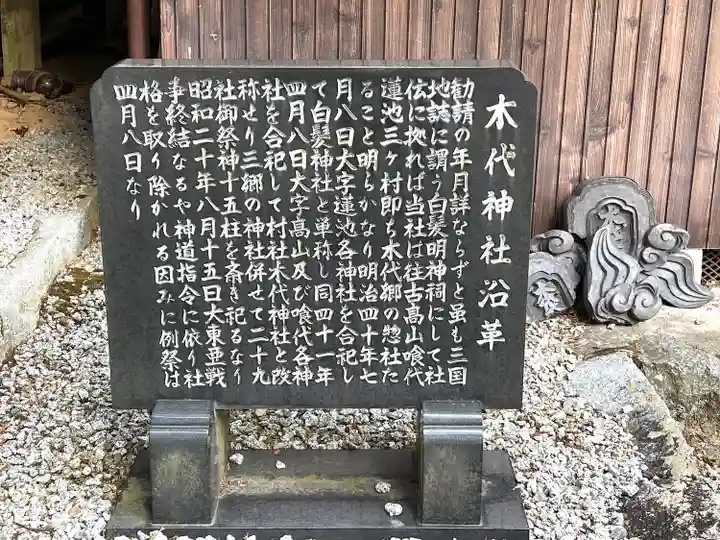 木代神社沿革
勧請の年月詳ならずと虽も三国
地誌に謂う白髪明神祠にして社
伝に拠れば当社は往古高山喰代
蓮池三ヶ村即ち木代郷の惣社た
ること明らかなり明治四十年七
月八日大字蓮池各神社を合祀し
て白髪神社と単称し同四十一年
四月八日大字高山及び喰代各神
社を合祀して村社木代神社と改
称せり三郷の神社併せて二十九
社御祭神十五柱を斎き祀るなり
昭和二十年八月十五日大東亜戦
事終結なるや神道指令に依り社
格を取り除かれる因みに例祭は
四月八日なり